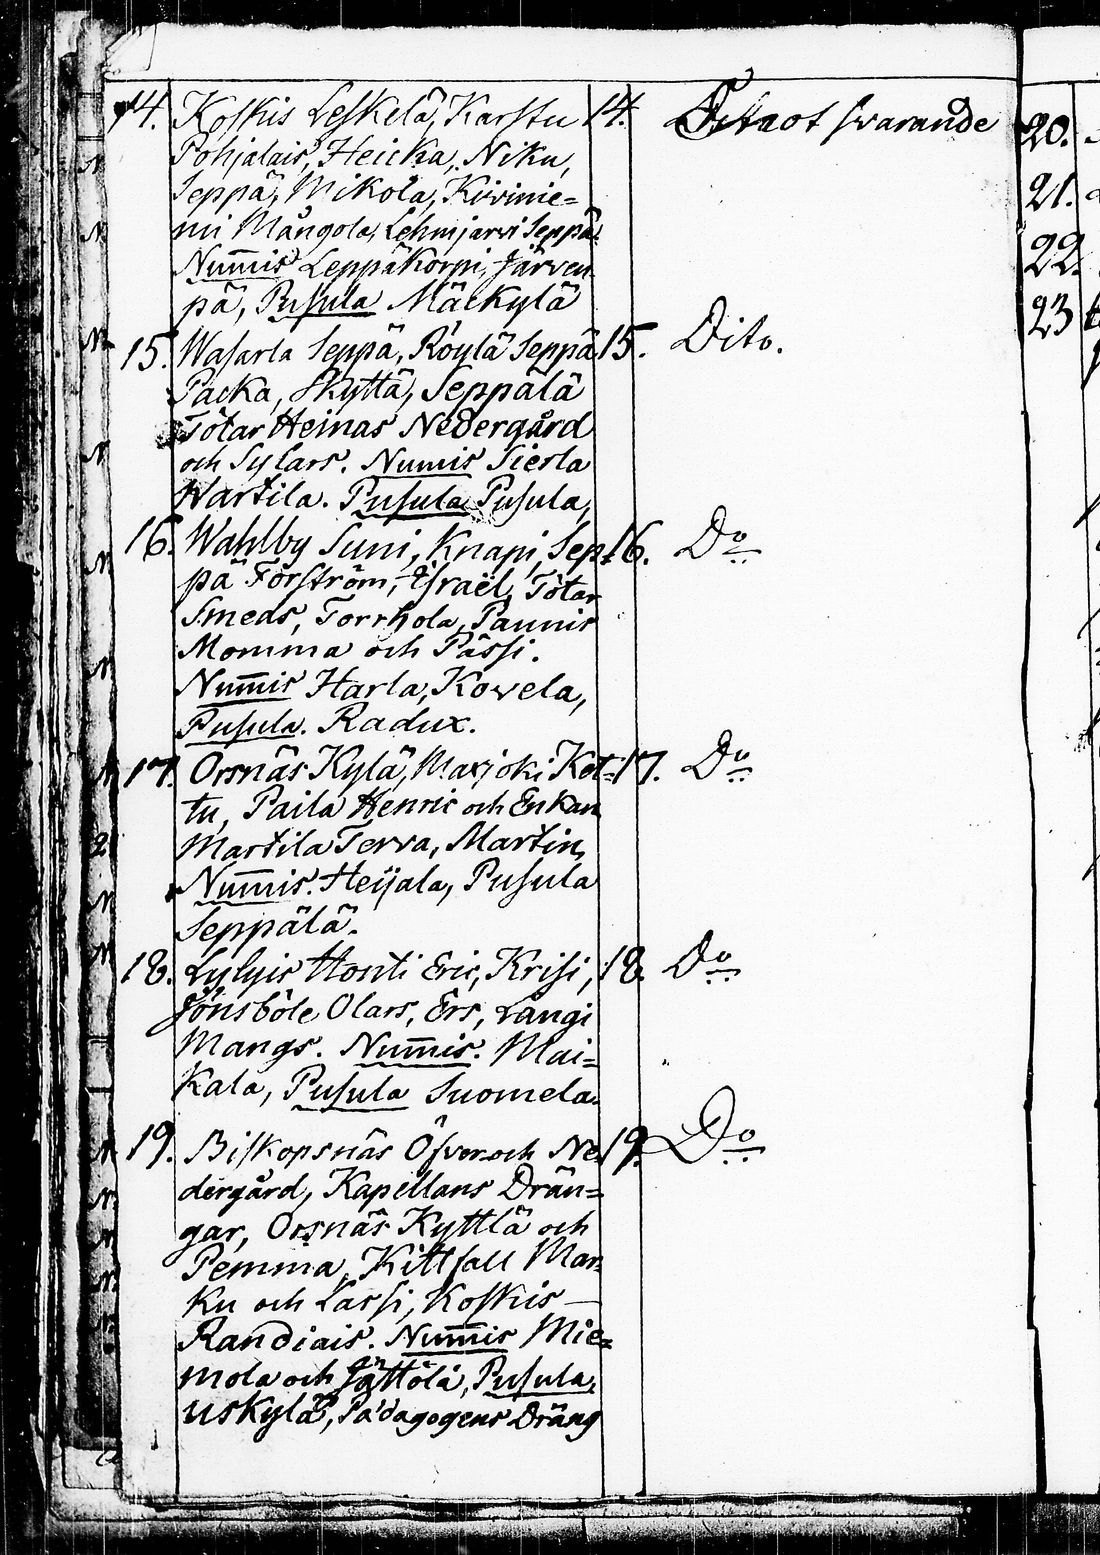 14. Koskis Leskelä, Karstu 14. Ditaot svarande
Pohjalais, Heicka, Niku,
Seppä, Mikola, Kivinie=
mi Mångola, Lehmjarvi Seppä.
Num̅is Leppäkorpi, Järven
pä, Pusula Mäckylä
15. Wasarla Seppä, Röylä Seppä 15. Dito.
Packa, Skyttä, Seppälä
Tötar Heinas Nedergård
och Sylars. Numis Sierla
Wartila. Pusula Pusula,
16. Wahlby Suni, Knapi, Sep= 16. Do
pä Forström, Israël, Tötar
Smeds, Torrhola, Paunis
Momma och Pässi.
Num̅is Harla, Kovela,
Pusula. Radux.
17. Orsnäs Kylä, Marjoki Kot= 17. Do
tu, Paila Henric och Enkan
Martila Terva, Martin,
Num̅is. Heijala, Pusula
Seppälä.
18. Lylyis Honti Eric, Krisi, 18. Do
Jönsböle Olars, Ers, Långi
Mangs. Num̅is. Mai=
kala, Pusula Suomela.
19. Biskopsnäs Öfver och Ne 19. Do
dergård, Kapellans Drän=
gar, Orsnäs Kyttlä och
Pemma, Kittfall Mar=
ku och Lassi, Koskis
Randiais. Num̅is Mie=
mola och Jättölä, Pusula,
uskylä, Pädagogens Dräng
20.
21.
22.
23